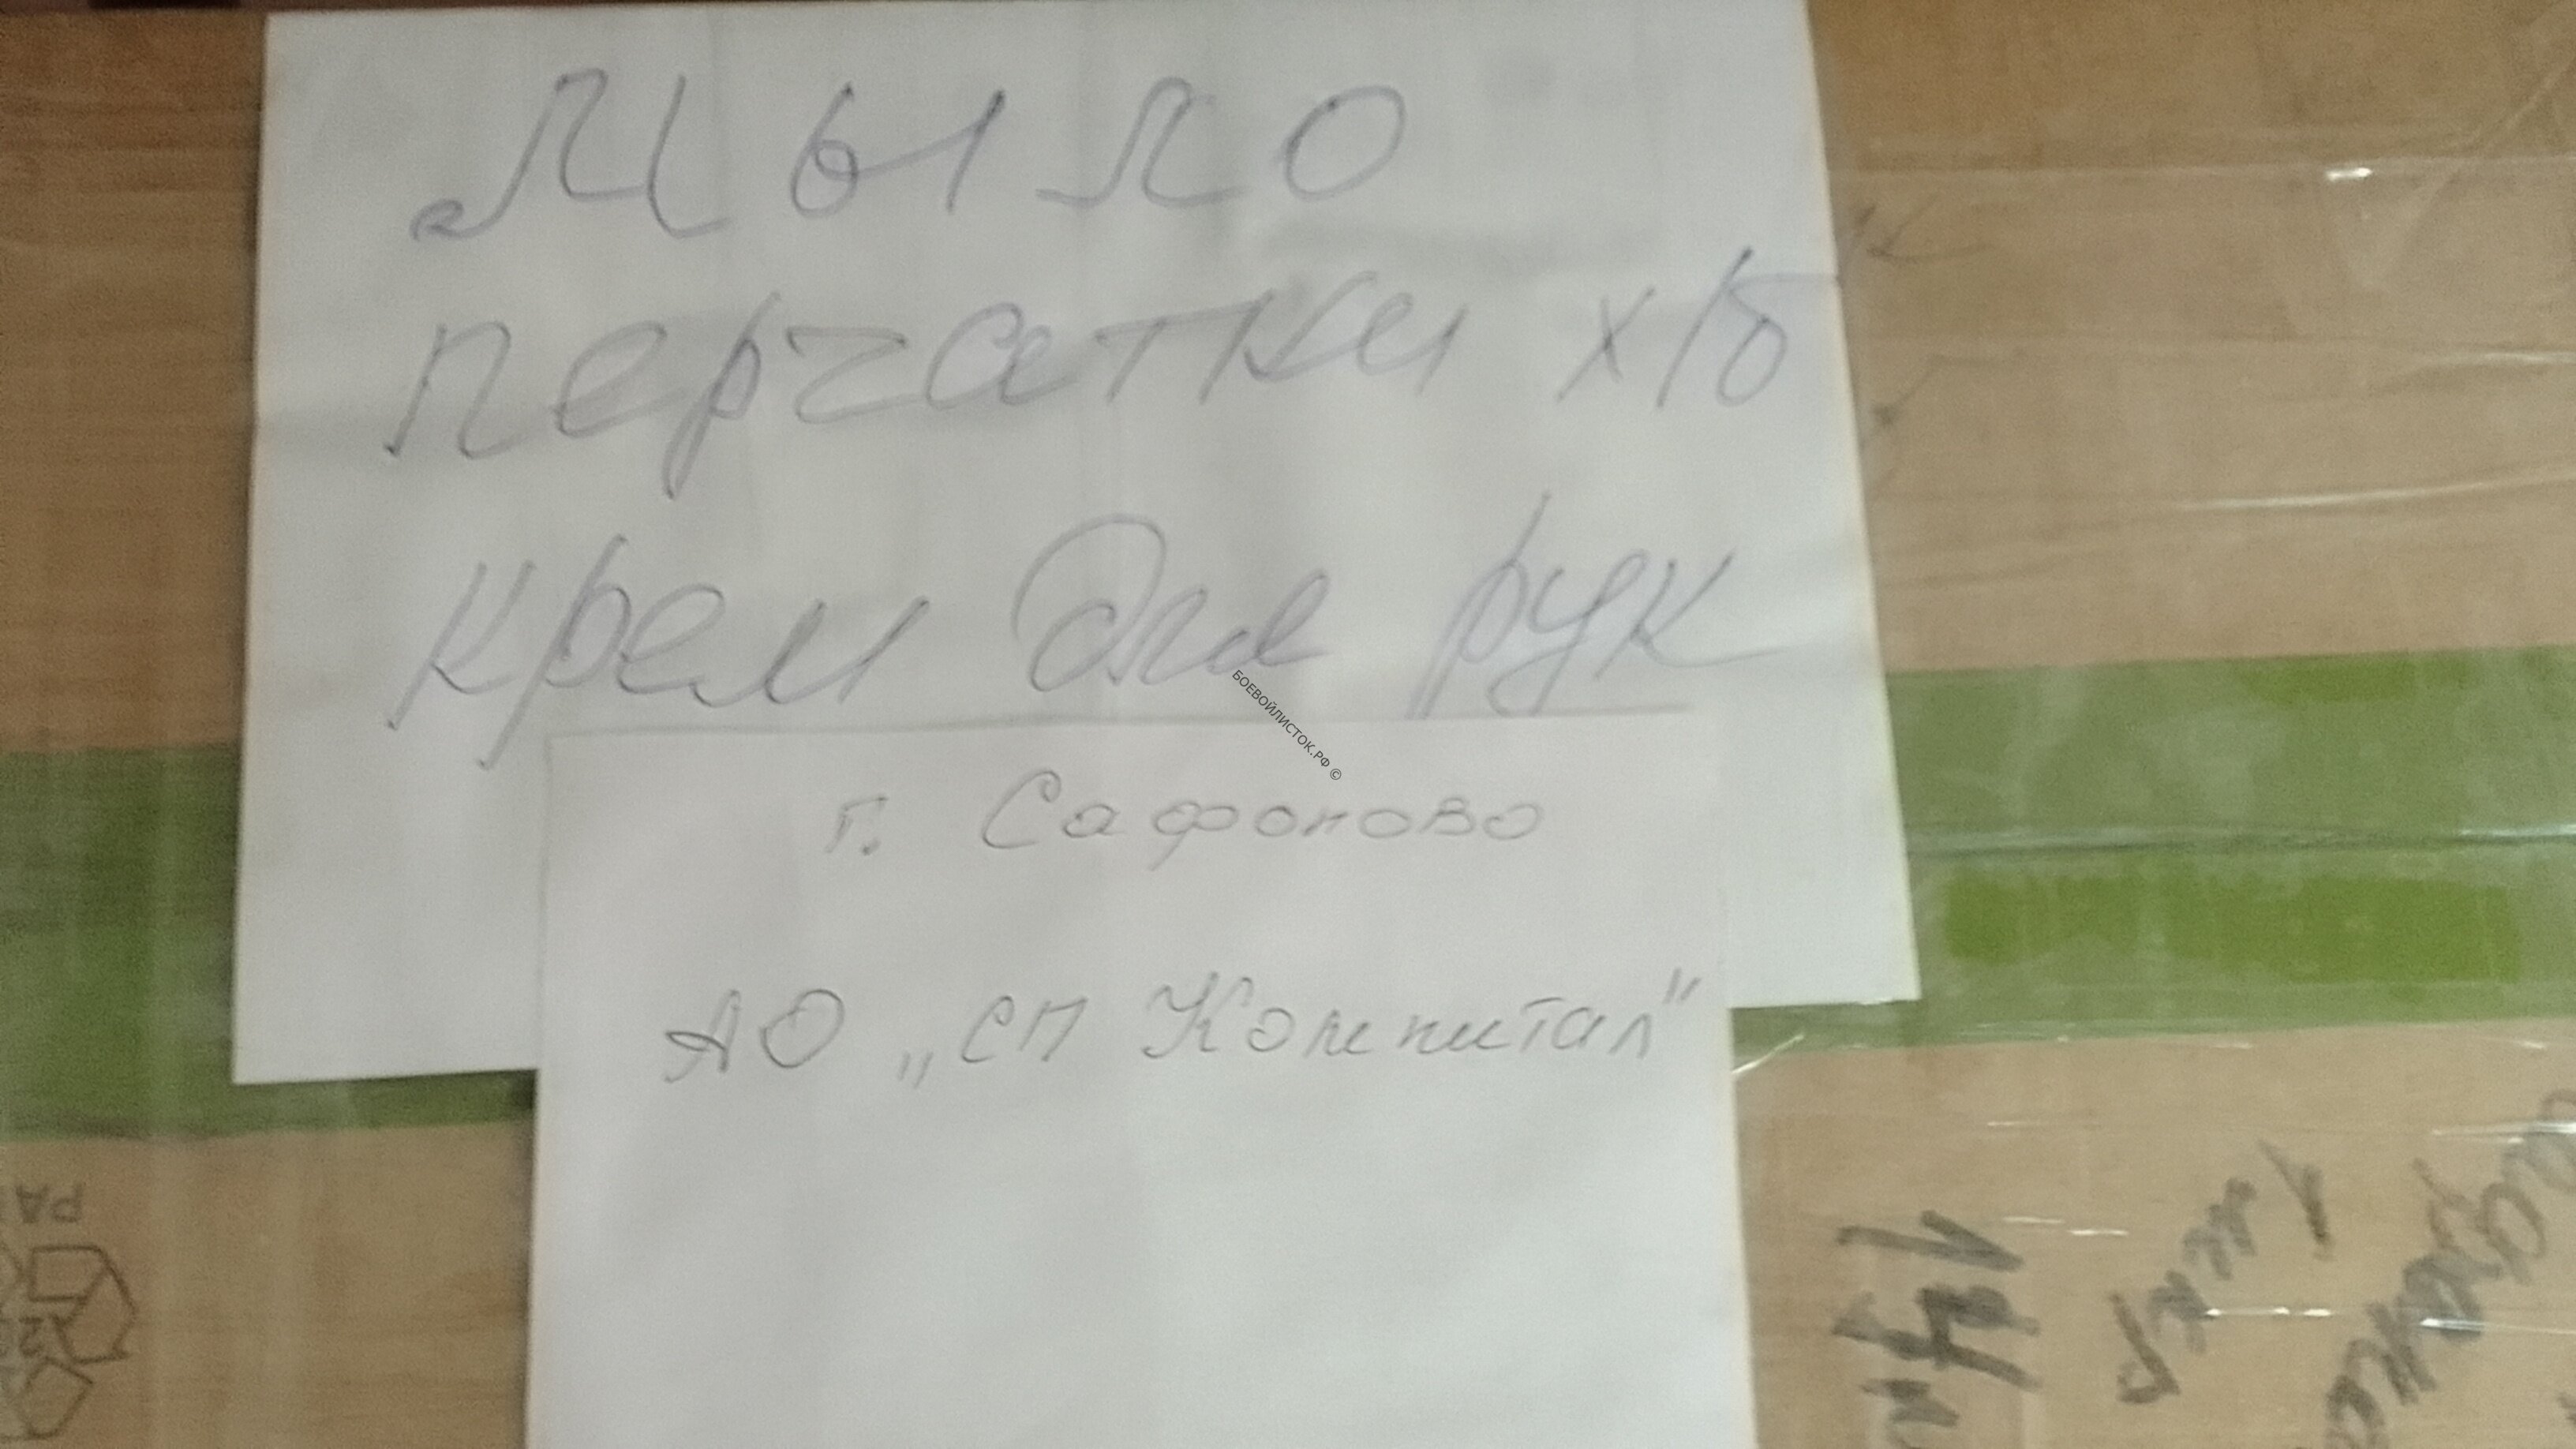 Мыло
перчатки х/б
крем для рук
БОЕВОЙЛИСТОК.РФ ©
г. Сафоново
АО „СП Компитал"